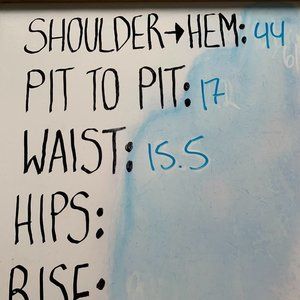 SHOULDER→HEM: 44
PIT TO PIT: 17
WAIST: 15.5
HIPS:
RISE: